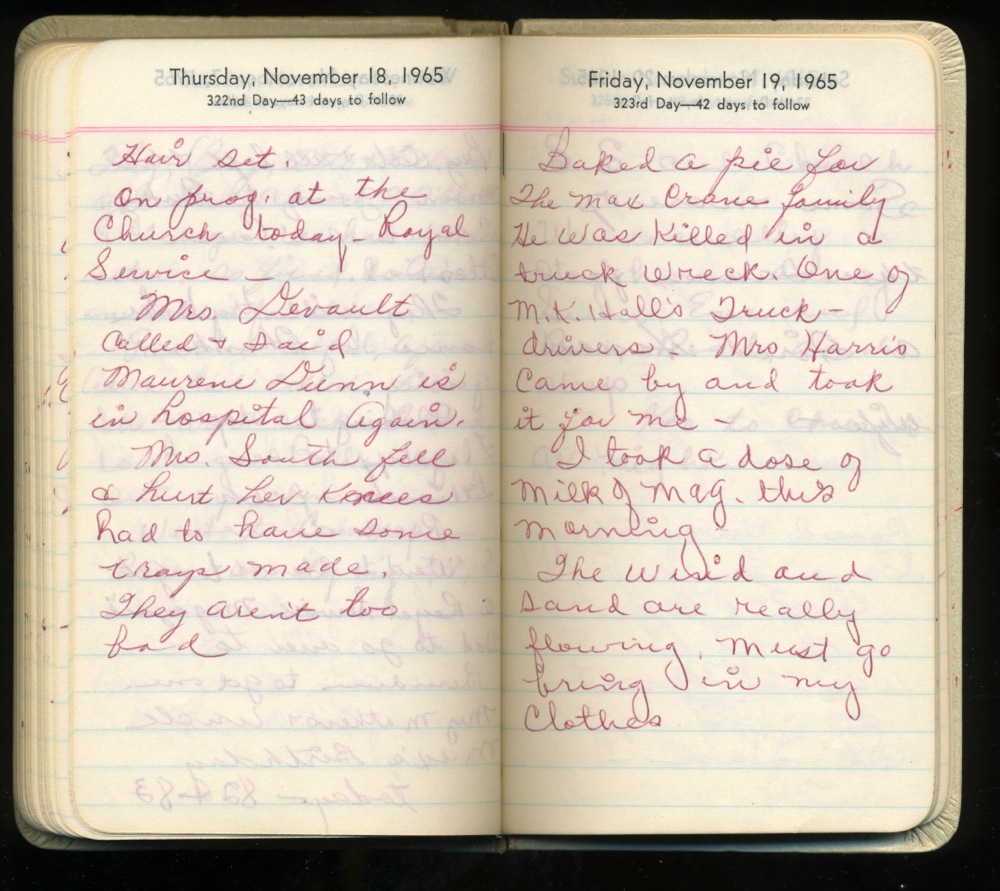 Thursday, November 18, 1965
322nd Day—43 days to follow
Hair set.
On prog. at the
Church today - Royal
Service -
Mrs. Devault
Called & Said
Maurene Dunn is
in hospital again.
Mrs. South fell
& hurt her Knees
had to have some
xrays made.
They aren't too
bad
Friday, November 19, 1965
323rd Day—42 days to follow
Baked a pie for
The Max Crane family
He was killed in a
truck wreck. One of
M.K. Hall's Truck -
drivers - Mrs Harris
came by and took
it for me -
I took a dose of
Milk of Mag. this
morning
The wind and
sand are really
flowing. Must go
bring in my
Clothes